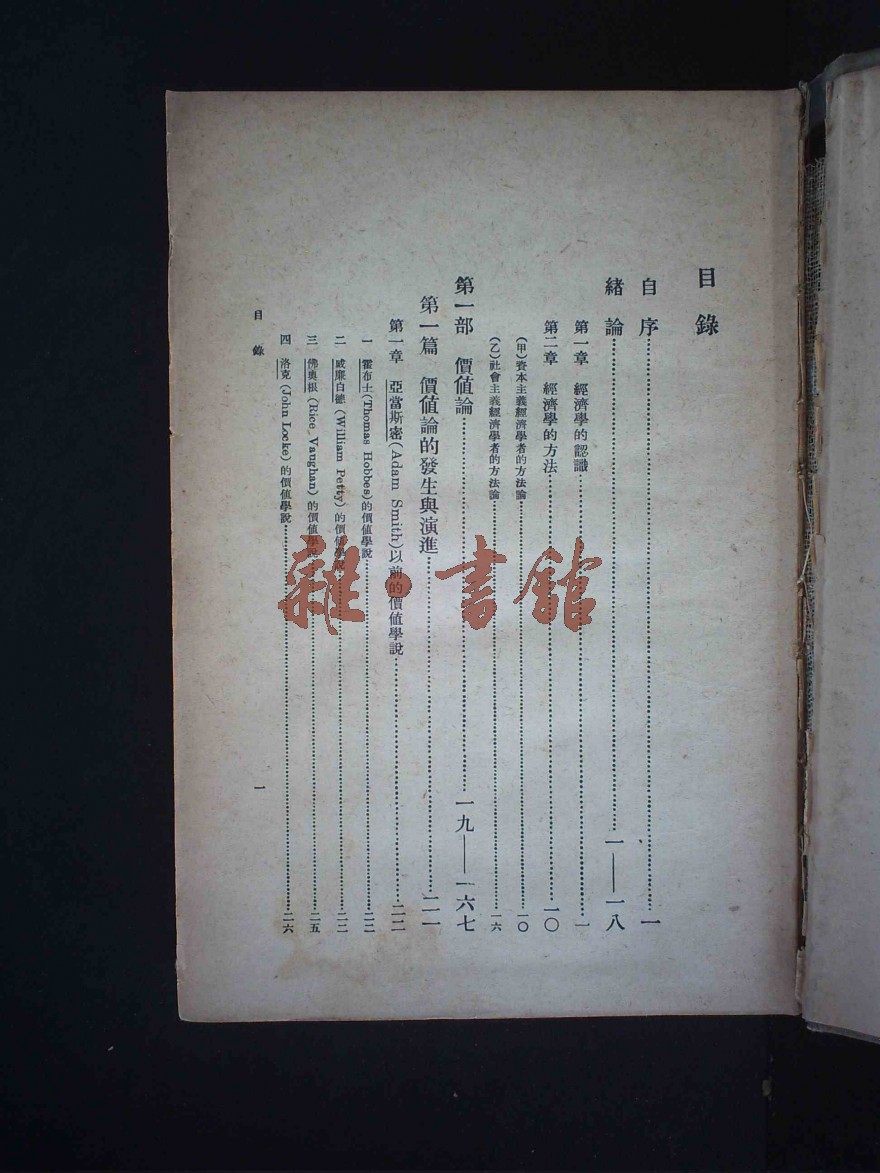 目錄
自序……一
緒論……一——一八
第一章 經濟學的認識……一
第二章 經濟學的方法……一〇
(甲)資本主義經濟學者的方法論……一〇
(乙)社會主義經濟學者的方法論……一六
第一部 價值論……一九——一六七
第一篇 價值論的發生與演進……二一
第一章 亞當斯密(Adam Smith)以前的價值學說……二二
一 霍布士(Thomas Hobbes)的價值學說……二二
二 威廉白德(William Petty)的價值學說……二三
三 佛奧根(Rice Vaughan)的價值學說……二五
四 洛克(John Locke)的價值學說……二六
目錄
一
雜·書館